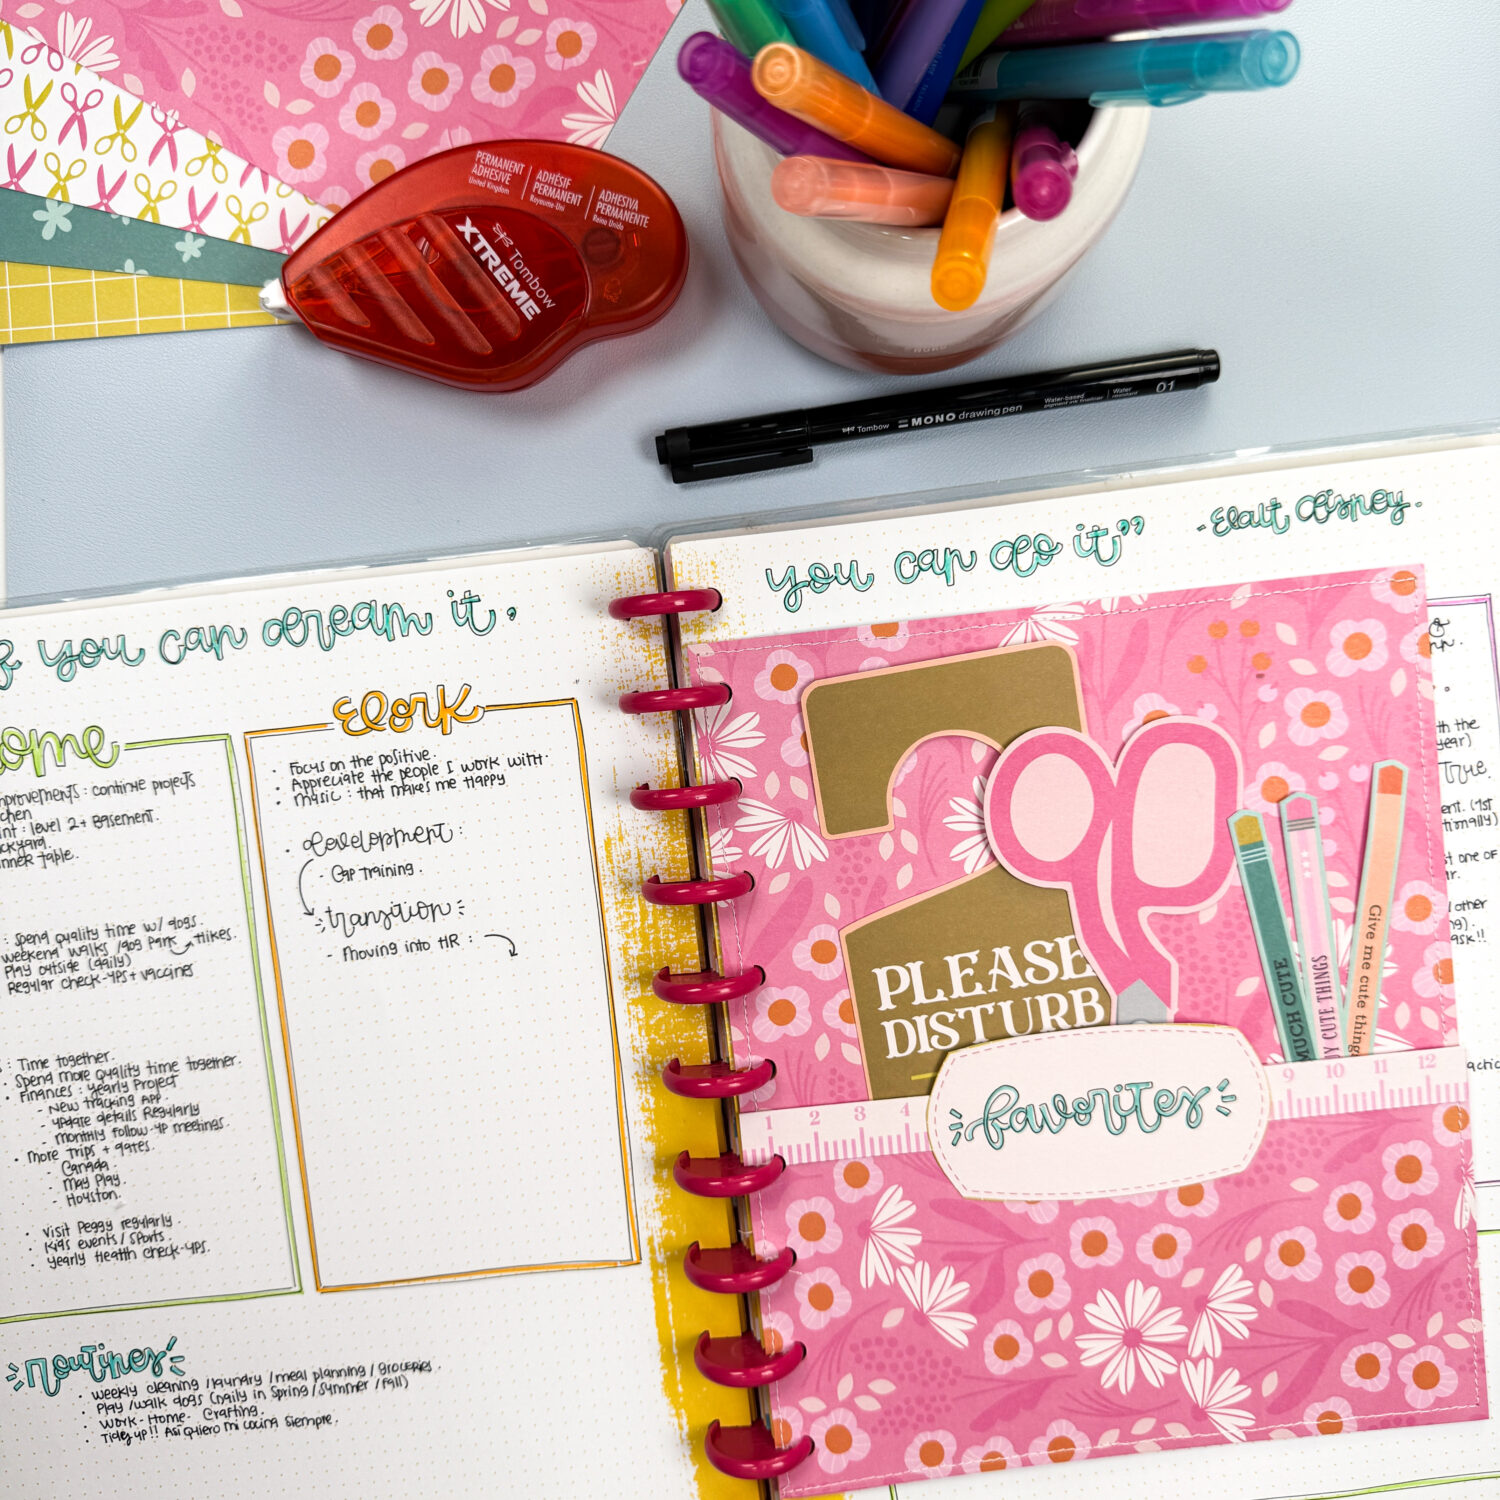 PERMANENT
ADHESIVE
United Kingdom
ADHÉSIF
PERMANENT
Royaume-Uni
ADHESIVA
PERMANENTE
Reino Unido
Tombow
XTREME
Tombow MONO drawing pen
Water-based
pigment ink fineliner
Water
resistant
01
you can dream it,
you can do it"
- Walt Disney.
Home
improvements: continue projects
level 2 + Basement.
table.
: Spend quality time w/ dogs.
weekend walks /dog park Hikes.
Play outside (daily)
Regular check-ups + vaccines
: Time together.
• Spend more Quality time together.
• Finances : yearly Project
- New tracking App.
- update details Regularly
- monthly follow-up meetings.
• more Trips + dates.
- Canada.
- May Play.
- Houston.
• visit Peggy regularly.
• Kids events / Sports.
• yearly Health check-ups.
Work
• Focus on the positive.
• Appreciate the people I work with.
• Music : that makes me Happy
• development :
- Cap Training.
transition
- Moving into HR :
Routines
• weekly cleaning / laundry / meal planning / groceries.
• Play /walk dogs (daily in Spring / Summer / fall)
• Work - Home - Crafting.
• Tidey up!! Asi quiero mi cocina siempre.
PLEASE
DISTURB
MUCH CUTE
CUTE THINGS
Give me cute things
1 2 3 4 9 10 11 12
favorites
with the
year)
True.
(1st
one of
other
ask!!